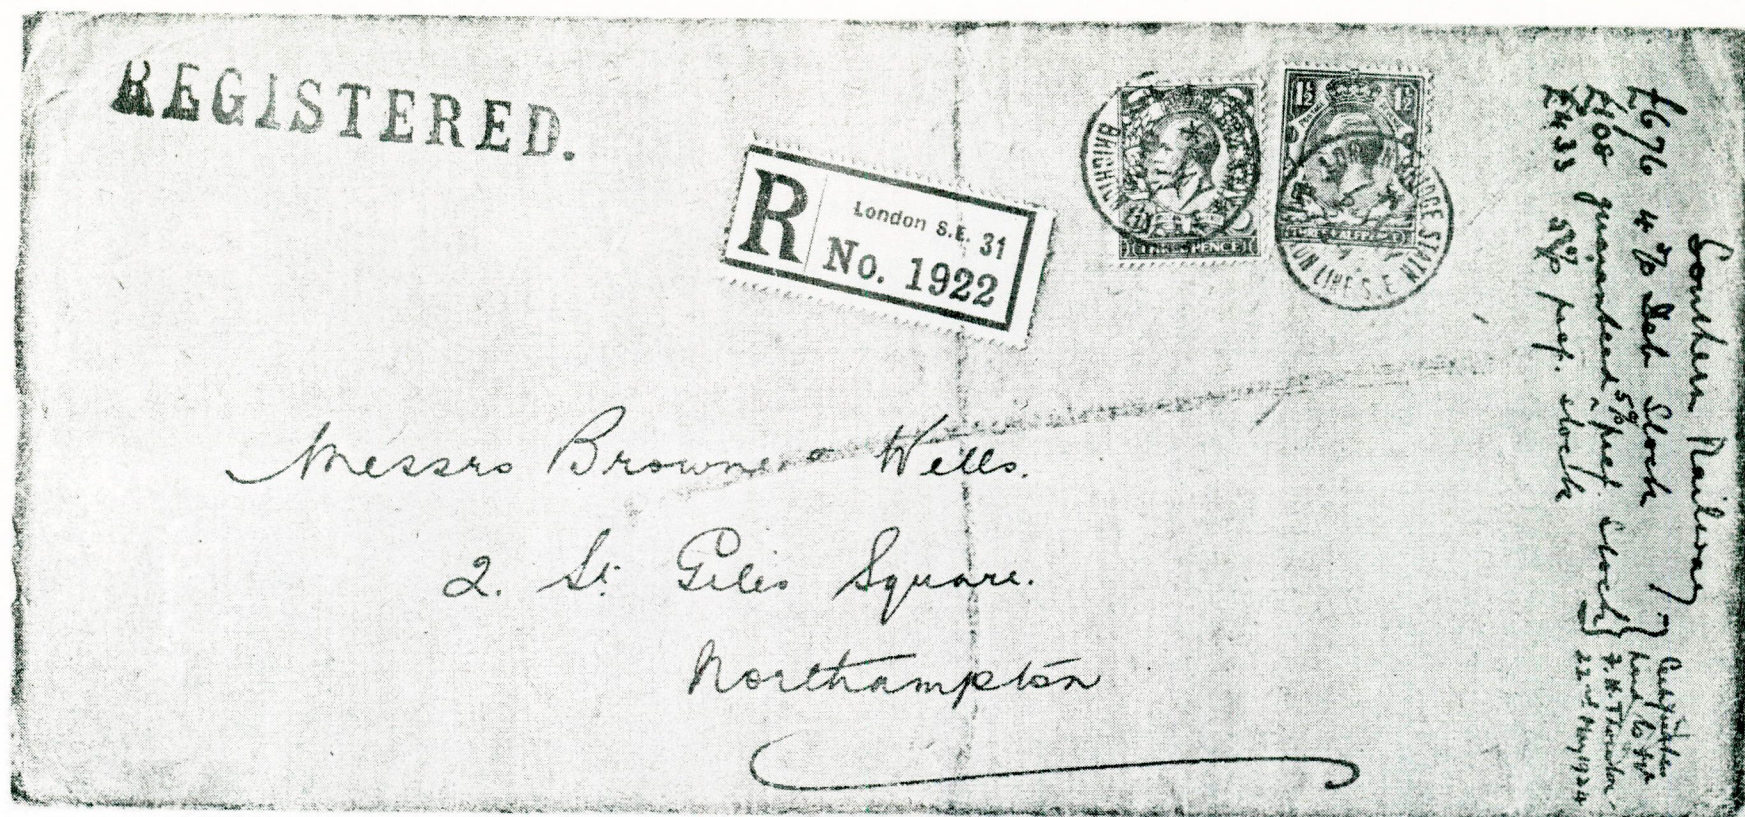 REGISTERED.
R
London S.E. 31
No. 1922
THREE PENCE
1½ 1½
BRIGHTON LINE S.E.
BRIDGE STATN
BRIGHTON LINE S.E.
Messrs Browne & Wells.
2. St. Giles Square.
Northampton
Southern Railway
£676 4% Deb Stock
£108 guaranteed 5% pref. stock
£433 5% pref. stock
Certificates
22nd May 1924